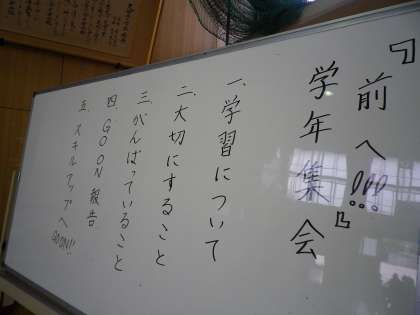 『前へ!!!』
学年集会
一、学習について
二、大切にすること
三、がんばっていること
四、GOON報告
五、スキルアップへGOON!!